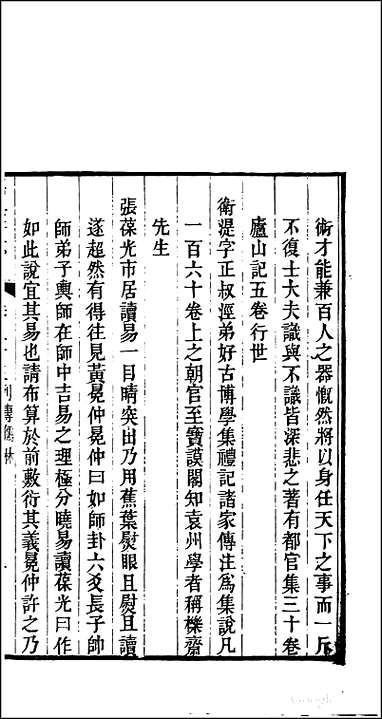 術才能兼百人之器慨然將以身任天下之事而一斥
不復士大夫識與不識皆深悲之著有都官集三十卷
廬山記五卷行世
衛湜字正叔涇弟好古博學集禮記諸家傳注爲集說凡
一百六十卷上之朝官至寶謨閣知袁州學者稱櫟齋
先生
張葆光市居讀易一目睛突出乃用蕉葉熨眼且熨且讀
遂超然有得往見黃冕仲冕仲曰如師卦六爻長子帥
師弟子輿師在師中吉易之理極分曉易讀葆光曰作
如此說宜其易也請布算於前數衍其義冕仲許之乃
列傳儒林